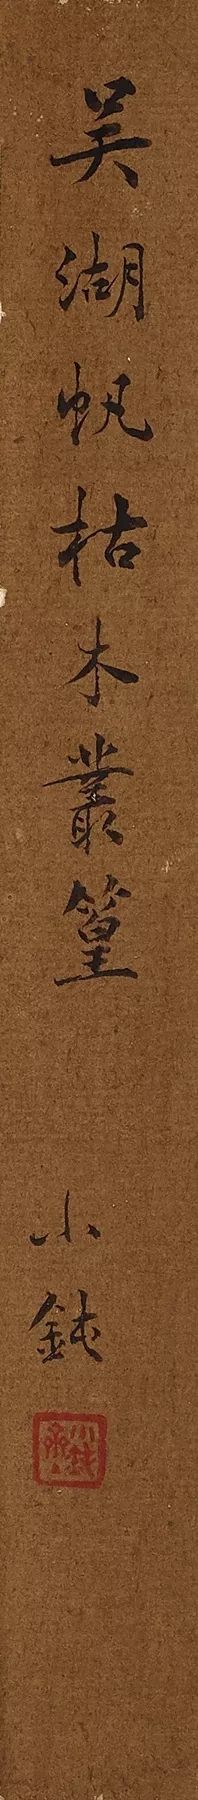 吴湖帆枯木叢篁
小鈍